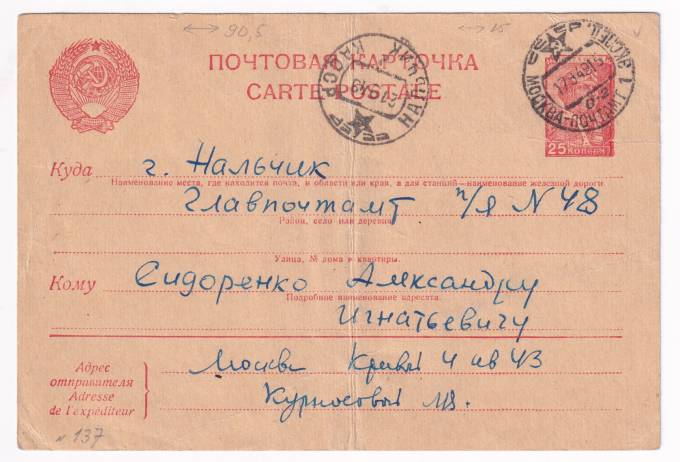 90,5 15
ПОЧТОВАЯ КАРТОЧКА
CARTE POSTALE
СССР НАЛЬЧИК КАБССР
СССР МОСКВА-ПОЧТАМТ
25 КОПЕЕК
Куда г. Нальчик
Наименование места, где находится почта, и области или края, а для станций—наименование железной дороги
Главпочтамт п/я N 48
Район, село или деревня
Улица, № дома и квартиры.
Кому Сидоренко Александру
Подробное наименование адресата
Игнатьевичу
Адрес отправителя
Adresse de l'expéditeur
Москва 4 кв 43
Курносовой
N 137